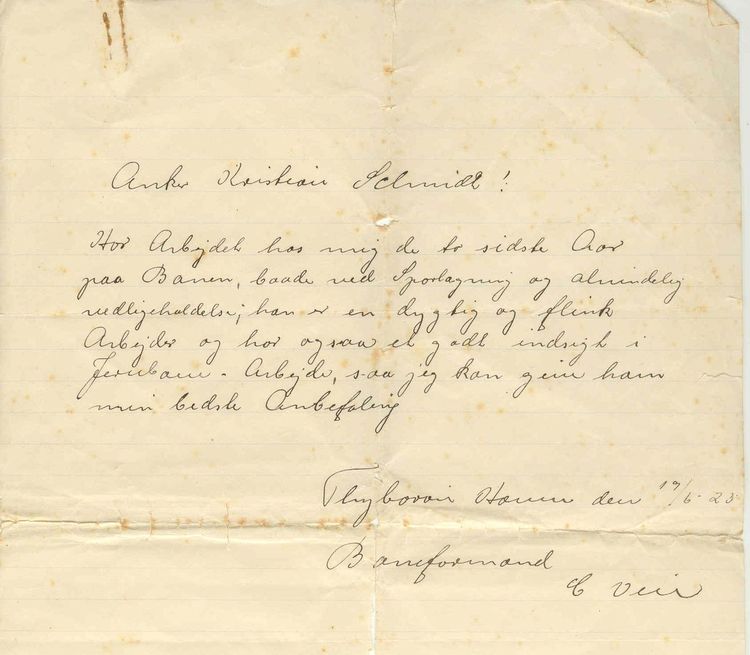 Anker Kristian Schmidt!
Har Arbejdet hos mig de to sidste Aar
paa Banen, baade ved Sporlægning og almindelig
vedligeholdelse; han er en dygtig og flink
Arbejder og har ogsaa et godt indsigt i
Jernbane - Arbejde, saa jeg kan give ham
min bedste Anbefaling
Thyborøn Havn den 17/6-25
Baneformand
C